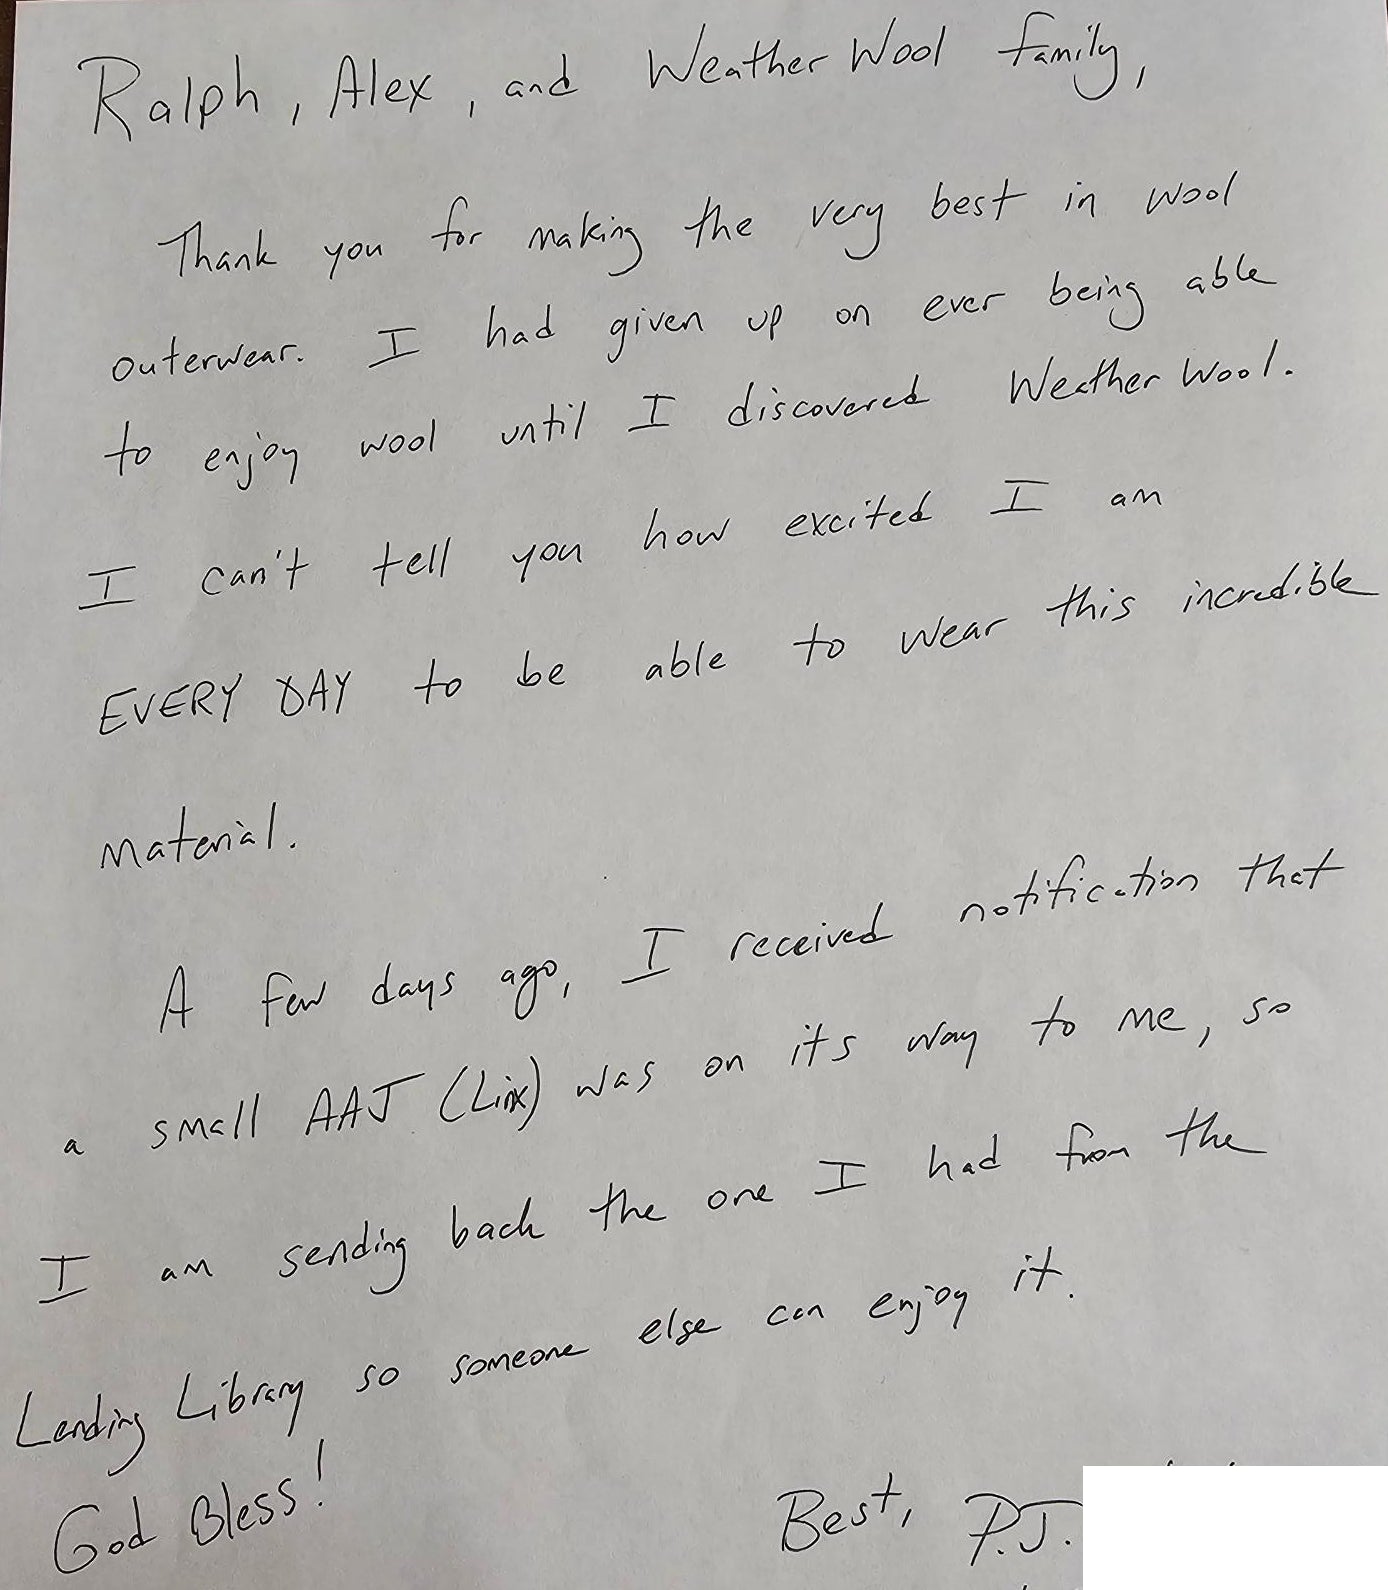 Ralph, Alex, and Weather Wool family,
Thank you for making the very best in wool
outerwear. I had given up on ever being able
to enjoy wool until I discovered Weather Wool.
I can't tell you how excited I am
EVERY DAY to be able to wear this incredible
material.
A few days ago, I received notification that
a small AAJ (Linx) was on its way to me, so
I am sending back the one I had from the
Lending Library so someone else can enjoy it.
God Bless!
Best, P.J.